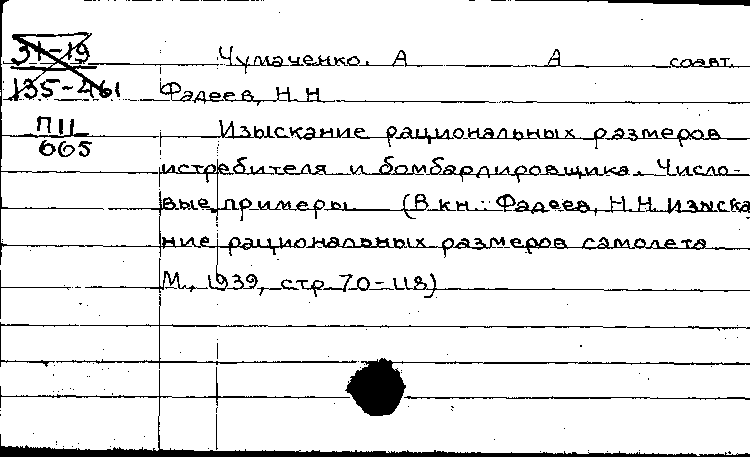 31-19 Чумаченко. А А соавт.
135-461 Фадеев, Н. Н
П11 Изыскание рациональных размеров
665
истребителя и бомбардировщика. Число-
вые примеры (В кн.: Фадеев, Н.Н. Изыска
ние рациональных размеров самолета
М., 1939, стр. 70-118)